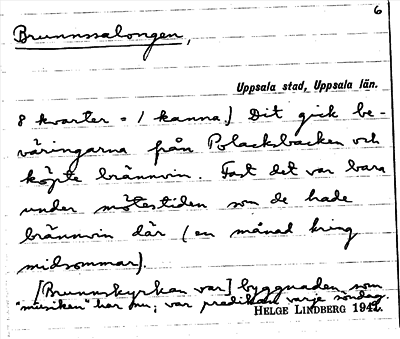 6
Brunnssalongen,
Uppsala stad, Uppsala län.
8 kvarter = 1 kanna.) Dit gick be-
väringarna från Polacksbacken och
köpte brännvin. Fast det var bara
under mötestiden som de hade
brännvin där (en månad kring
midsommar).
[Brunnskyrkan var] byggnaden som
"musiken" har nu; var predikan varje söndag.
HELGE LINDBERG 1941.